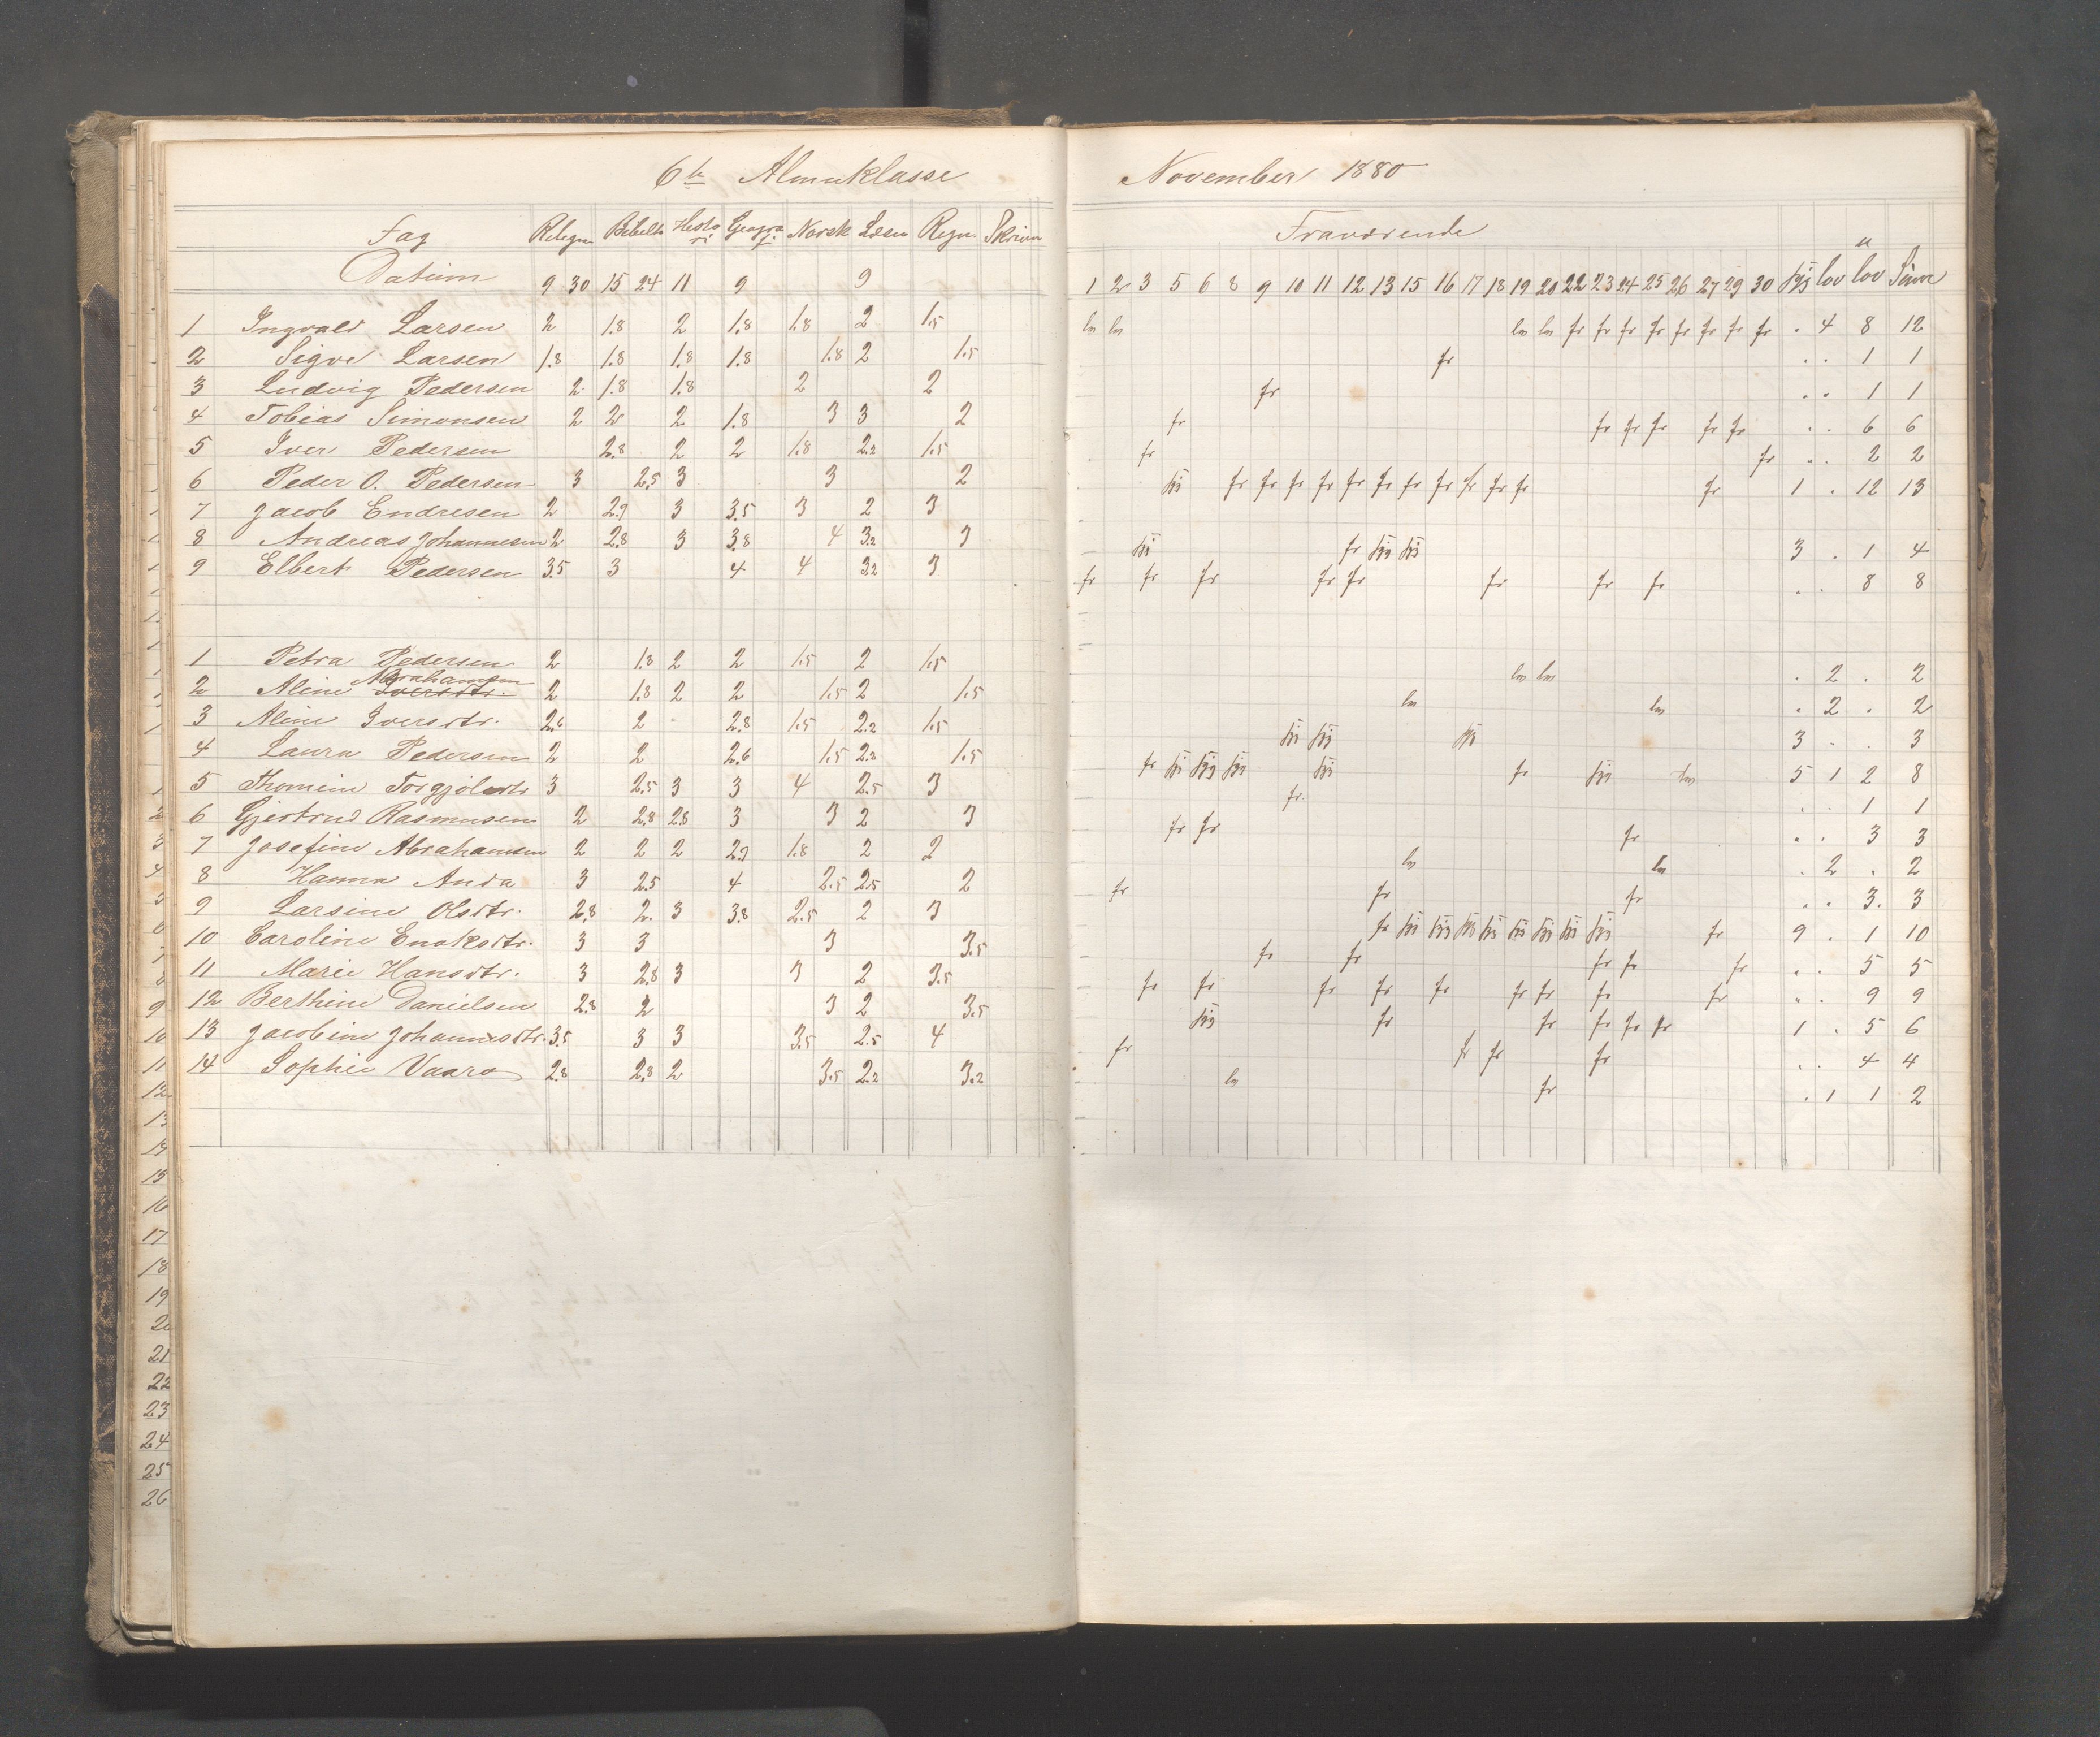 6te Almueklasse
Fag Relign Bibelh Histori Geografi Norsk Læsn Regn Skrivn
Datum 9 30 15 24 11 9 9
1 Ingvald Larsen 2 1.8 2 1.8 1.8 2 1.5
2 Sigve Larsen 1.8 1.8 1.8 1.8 1.8 2 1.5
3 Ludvig Pedersen 2 1.8 1.8 2 2
4 Tobias Simonsen 2 2 2 1.8 3 3 2
5 Iver Pedersen 2.8 2 2 1.8 2.2 1.5
6 Peder O. Pedersen 3 2.5 3 3 2
7 Jacob Endresen 2 2.9 3 3.5 3 2 3
8 Andreas Johannesen 2 2.8 3 3.8 4 3.2 3
9 Elbert Pedersen 3.5 3 4 4 3.2 3
1 Petra Pedersen 2 1.8 2 2 1.5 2 1.5
Abrahamsen
2 Aline Iversdtr. 2 1.8 2 2 1.5 2 1.5
3 Aline Iversdtr. 2.6 2 2.8 1.5 2.2 1.5
4 Laura Pedersen 2 2 2.6 1.5 2.2 1.5
5 Thomine 3 2.5 3 3 4 2.5 3
6 Gjertrud Rasmusen 2 2.8 2.8 3 3 2 3
7 Josefine Abrahamsen 2 2 2 2.9 1.8 2 2
8 Hanna Anda 3 2.5 4 2.5 2.5 2
9 Larsine Olsdtr. 2.8 2. 3 3.8 2.5 2 3
10 Caroline Enoksdtr. 3 3 3 3.5
11 Marie Hansdtr. 3 2.8 3 3 2 3.5
12 Berthine Danielsen 2.8 2 3 2 3.5
13 Jacobine Johannesdtr. 3.5 3 3 3.5 2.5 4
14 Sophie Vaara 2.8 2.8 2 3.5 2.2 3.2
1
2
3
4
5
6
7
8
9
10
11
12
13
14
15
16
17
18
19
20
21
22
23
24
25
26
November 1880
Fraværende
1 2 3 5 6 8 9 10 11 12 13 15 16 17 18 19 20 22 23 24 25 26 27 29 30 syg lov u lov Sum
ln ln ln ln fr fr fr fr fr fr fr fr . 4 8 12
fr . . 1 1
fr . . 1 1
fr fr fr fr fr fr . . 6 6
fr fr . . 2 2
syg fr fr fr fr fr fr fr fr fr fr fr fr 1 . 12 13
syg fr syg syg 3 . 1 4
fr fr fr fr fr fr fr fr . . 8 8
ln ln . 2 . 2
ln ln . 2 . 2
syg syg syg 3 . . 3
fr syg syg syg syg fr syg ln 5 1 2 8
fr . . 1 1
fr fr fr . . 3 3
ln ln . 2 . 2
fr fr fr . . 3. 3
fr syg syg syg syg syg syg syg syg fr 9 . 1 10
fr fr fr fr fr . . 5 5
fr fr fr fr fr fr fr fr fr . . 9 9
syg fr fr fr fr fr 1 . 5 6
fr fr fr fr . . 4 4
ln fr . 1 1 2